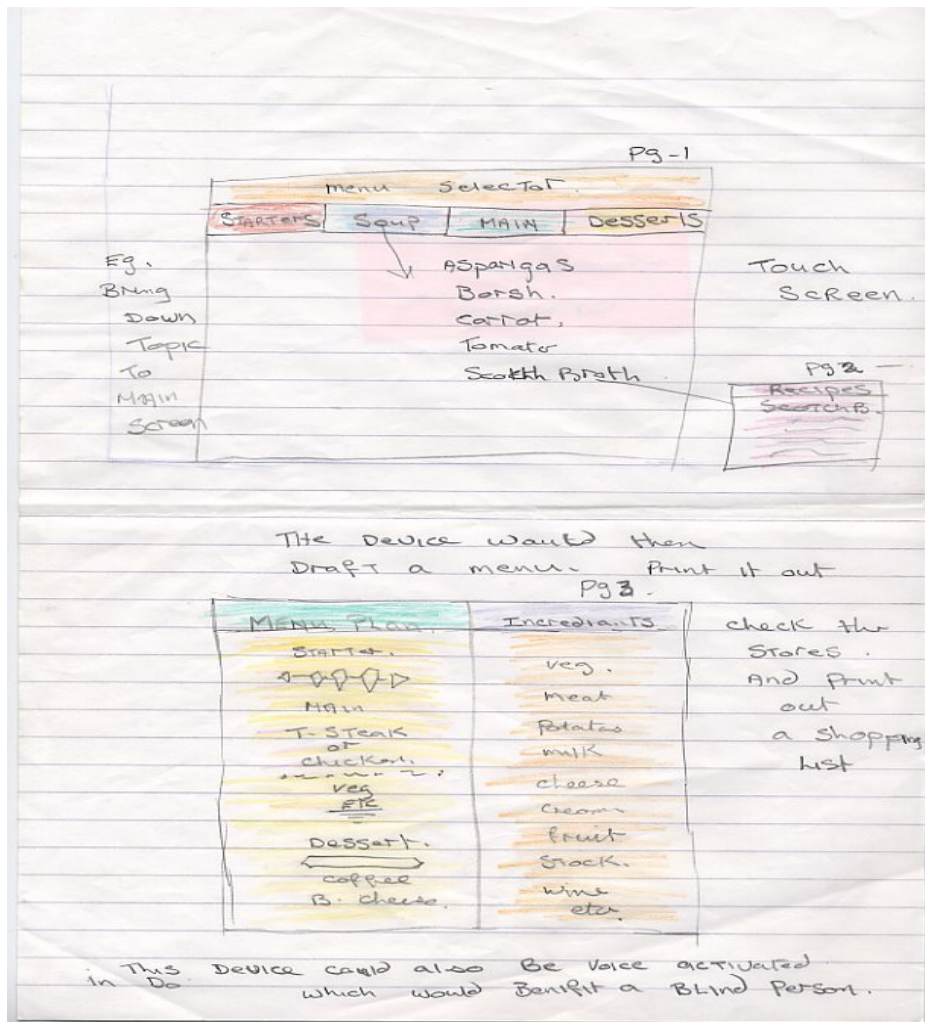 Pg-1
menu Selector.
STARTERS Soup MAIN Desserts
Eg.
Bring
Down
Topic
To
Main
Screen
Asparigas
Borsh.
Carrot,
Tomato
Scotth Broth
Touch
Screen.
Pg 2 —
Recipes
Scotch B.
THe Device would then
Draft a menu. Print it out
Pg 3.
MENU Plan.
Starter.
MAIN
T-STeak
or
chicken.
veg
ETC
Dessert.
coffee
B. cheese.
Incrediants
veg.
meat
Potatos
milk
cheese
cream
fruit
Stock.
wine
etc.
check the
Stores.
And Print
out
a Shopping
List
This Device could also Be Voice activated.
in Do which would Benifit a BLind Person.